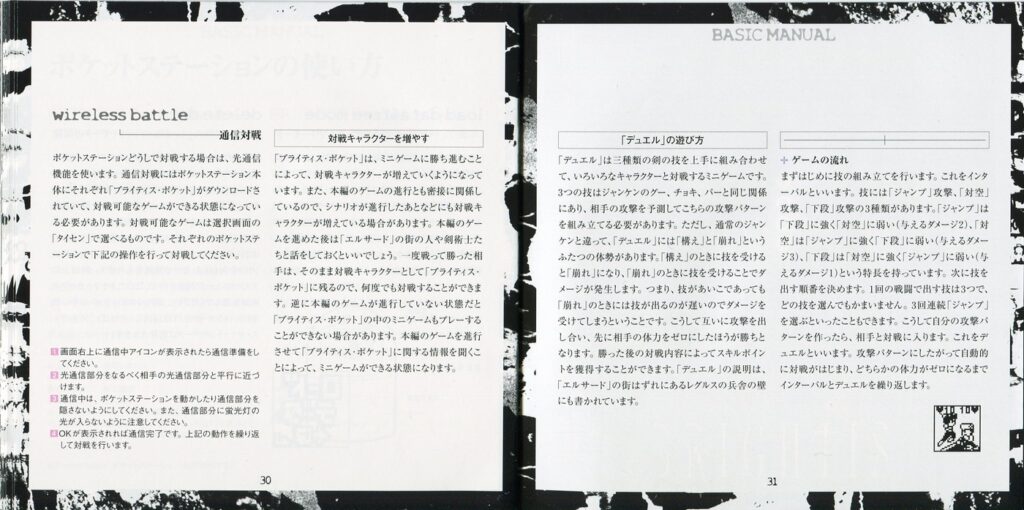 wireless battle
通信対戦
ポケットステーションどうしで対戦する場合は、光通信
機能を使います。通信対戦にはポケットステーション本
体にそれぞれ「プライティス・ポケット」がダウンロードさ
れていて、対戦可能なゲームができる状態になってい
る必要があります。対戦可能なゲームは選択画面の
「タイセン」で選べるものです。それぞれのポケットステ
ーションで下記の操作を行って対戦してください。
1 画面右上に通信中アイコンが表示されたら通信準備をし
てください。
2 光通信部分をなるべく相手の光通信部分と平行に近づ
けます。
3 通信中は、ポケットステーションを動かしたり通信部分を
隠さないようにしてください。また、通信部分に蛍光灯の
光が入らないように注意してください。
4 OKが表示されれば通信完了です。上記の動作を繰り返
して対戦を行います。
対戦キャラクターを増やす
「プライティス・ポケット」は、ミニゲームに勝ち進むこと
によって、対戦キャラクターが増えていくようになって
います。また、本編のゲームの進行とも密接に関係し
ているので、シナリオが進行したあとなどにも対戦キ
ャラクターが増えている場合があります。本編のゲー
ムを進めた後は「エルサード」の街の人や剣術士た
ちと話をしておくといいでしょう。一度戦って勝った相
手は、そのまま対戦キャラクターとして「プライティス・
ポケット」に残るので、何度でも対戦することができま
す。逆に本編のゲームが進行していない状態だと
「プライティス・ポケット」の中のミニゲームもプレーする
ことができない場合があります。本編のゲームを進行
させて「プライティス・ポケット」に関する情報を聞くこ
とによって、ミニゲームができる状態になります。
30
BASIC MANUAL
「デュエル」の遊び方
「デュエル」は三種類の剣の技を上手に組み合わせ
て、いろいろなキャラクターと対戦するミニゲームです。
3つの技はジャンケンのグー、チョキ、パーと同じ関係
にあり、相手の攻撃を予測してこちらの攻撃パターン
を組み立てる必要があります。ただし、通常のジャン
ケンと違って、「デュエル」には「構え」と「崩れ」という
ふたつの体勢があります。「構え」のときに技を受ける
と「崩れ」になり、「崩れ」のときに技を受けることでダ
メージが発生します。つまり、技があいこであっても
「崩れ」のときには技が出るのが遅いのでダメージを
受けてしまうということです。こうして互いに攻撃を出
し合い、先に相手の体力をゼロにしたほうが勝ちと
なります。勝った後の対戦内容によってスキルポイン
トを獲得することができます。「デュエル」の説明は、
「エルサード」の街はずれにあるレグルスの兵舎の壁
にも書かれています。
ゲームの流れ
まずはじめに技の組み立てを行います。これをインタ
ーバルといいます。技には「ジャンプ」攻撃、「対空」
攻撃、「下段」攻撃の3種類があります。「ジャンプ」は
「下段」に強く「対空」に弱い(与えるダメージ2)、「対
空」は「ジャンプ」に強く「下段」に弱い(与えるダメー
ジ3)、「下段」は「対空」に強く「ジャンプ」に弱い(与
えるダメージ1)という特長を持っています。次に技を
出す順番を決めます。1回の戦闘で出す技は3つで、
どの技を選んでもかまいません。3回連続「ジャンプ」
を選ぶといったこともできます。こうして自分の攻撃パ
ターンを作ったら、相手と対戦に入ります。これをデ
ュエルといいます。攻撃パターンにしたがって自動的
に対戦がはじまり、どちらかの体力がゼロになるまで
インターバルとデュエルを繰り返します。
31